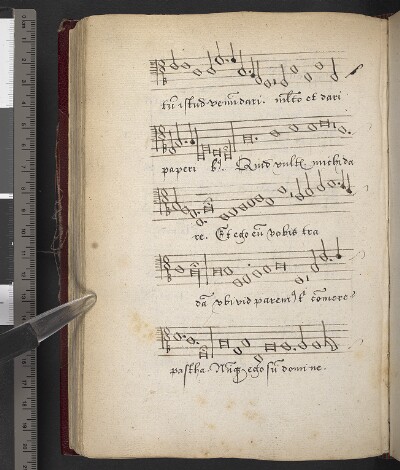 tū istud venūdari. multo et dari
paperib9. Quid vultꝭ michi da
re. Et ego eū vobis tra
dā vbi vid paremꝰ t' cōmere
pascha. Nūqͥd ego sū domine.